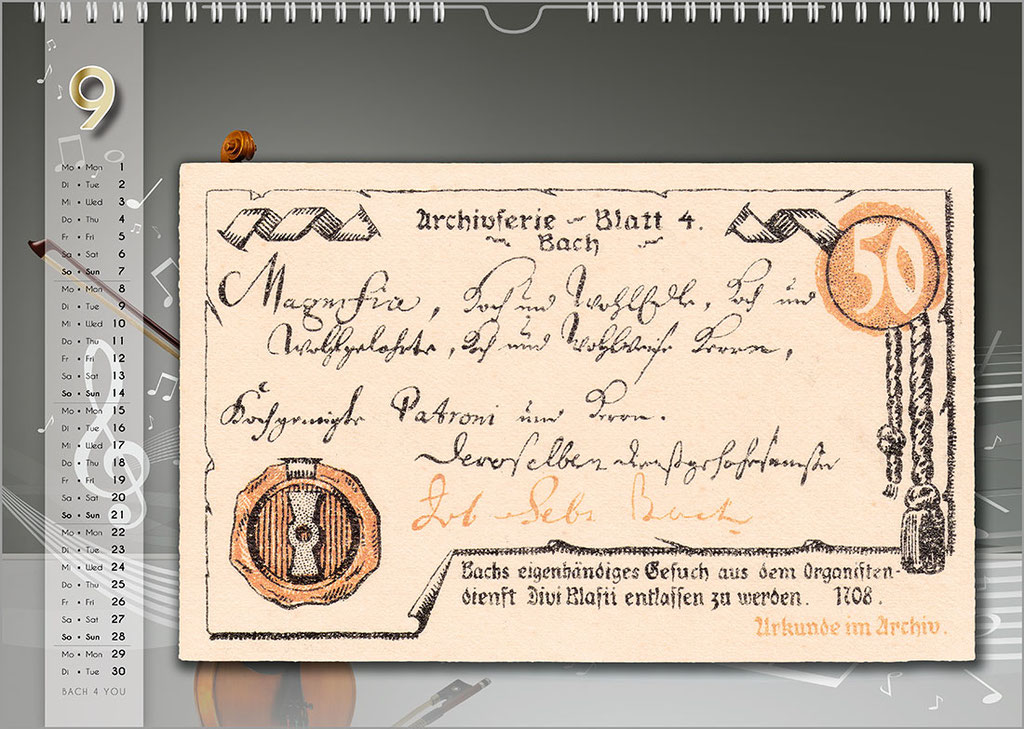 9
Mo • Mon 1
Di • Tue 2
Mi • Wed 3
Do • Thu 4
Fr • Fri 5
Sa • Sat 6
So • Sun 7
Mo • Mon 8
Di • Tue 9
Mi • Wed 10
Do • Thu 11
Fr • Fri 12
Sa • Sat 13
So • Sun 14
Mo • Mon 15
Di • Tue 16
Mi • Wed 17
Do • Thu 18
Fr • Fri 19
Sa • Sat 20
So • Sun 21
Mo • Mon 22
Di • Tue 23
Mi • Wed 24
Do • Thu 25
Fr • Fri 26
Sa • Sat 27
So • Sun 28
Mo • Mon 29
Di • Tue 30
BACH 4 YOU
Archivserie - Blatt 4.
Bach
50
Magnifici, Hoch und WohlEdle, Hoch und
Wohlgelahrte, Hoch und Wohlweise Herren,
Hochgeneigte Patroni und Herren.
Deroselben
Joh Sebt Bach
Bachs eigenhändiges Gesuch aus dem Organisten-
dienst Divi Blasii entlassen zu werden. 1708.
Urkunde im Archiv.